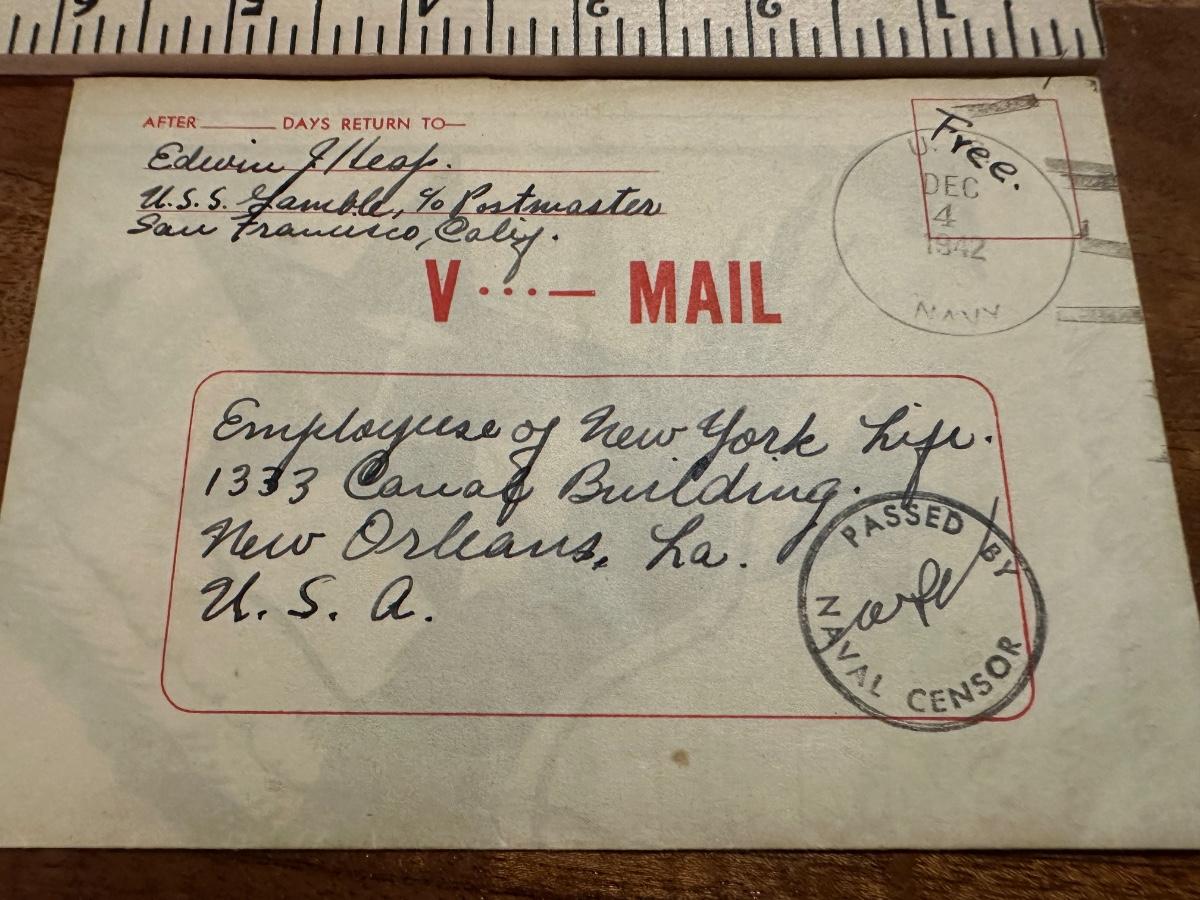 6 5 4 3 2 1
AFTER DAYS RETURN TO—
Edwin J.
U.S.S. Gamble, c/o Postmaster
San Francisco, Calif.
Free.
DEC
4
1942
NAVY
V ...— MAIL
Employees of New York Life.
1333 Canal Building.
New Orleans, La.
U. S. A.
PASSED BY
NAVAL CENSOR